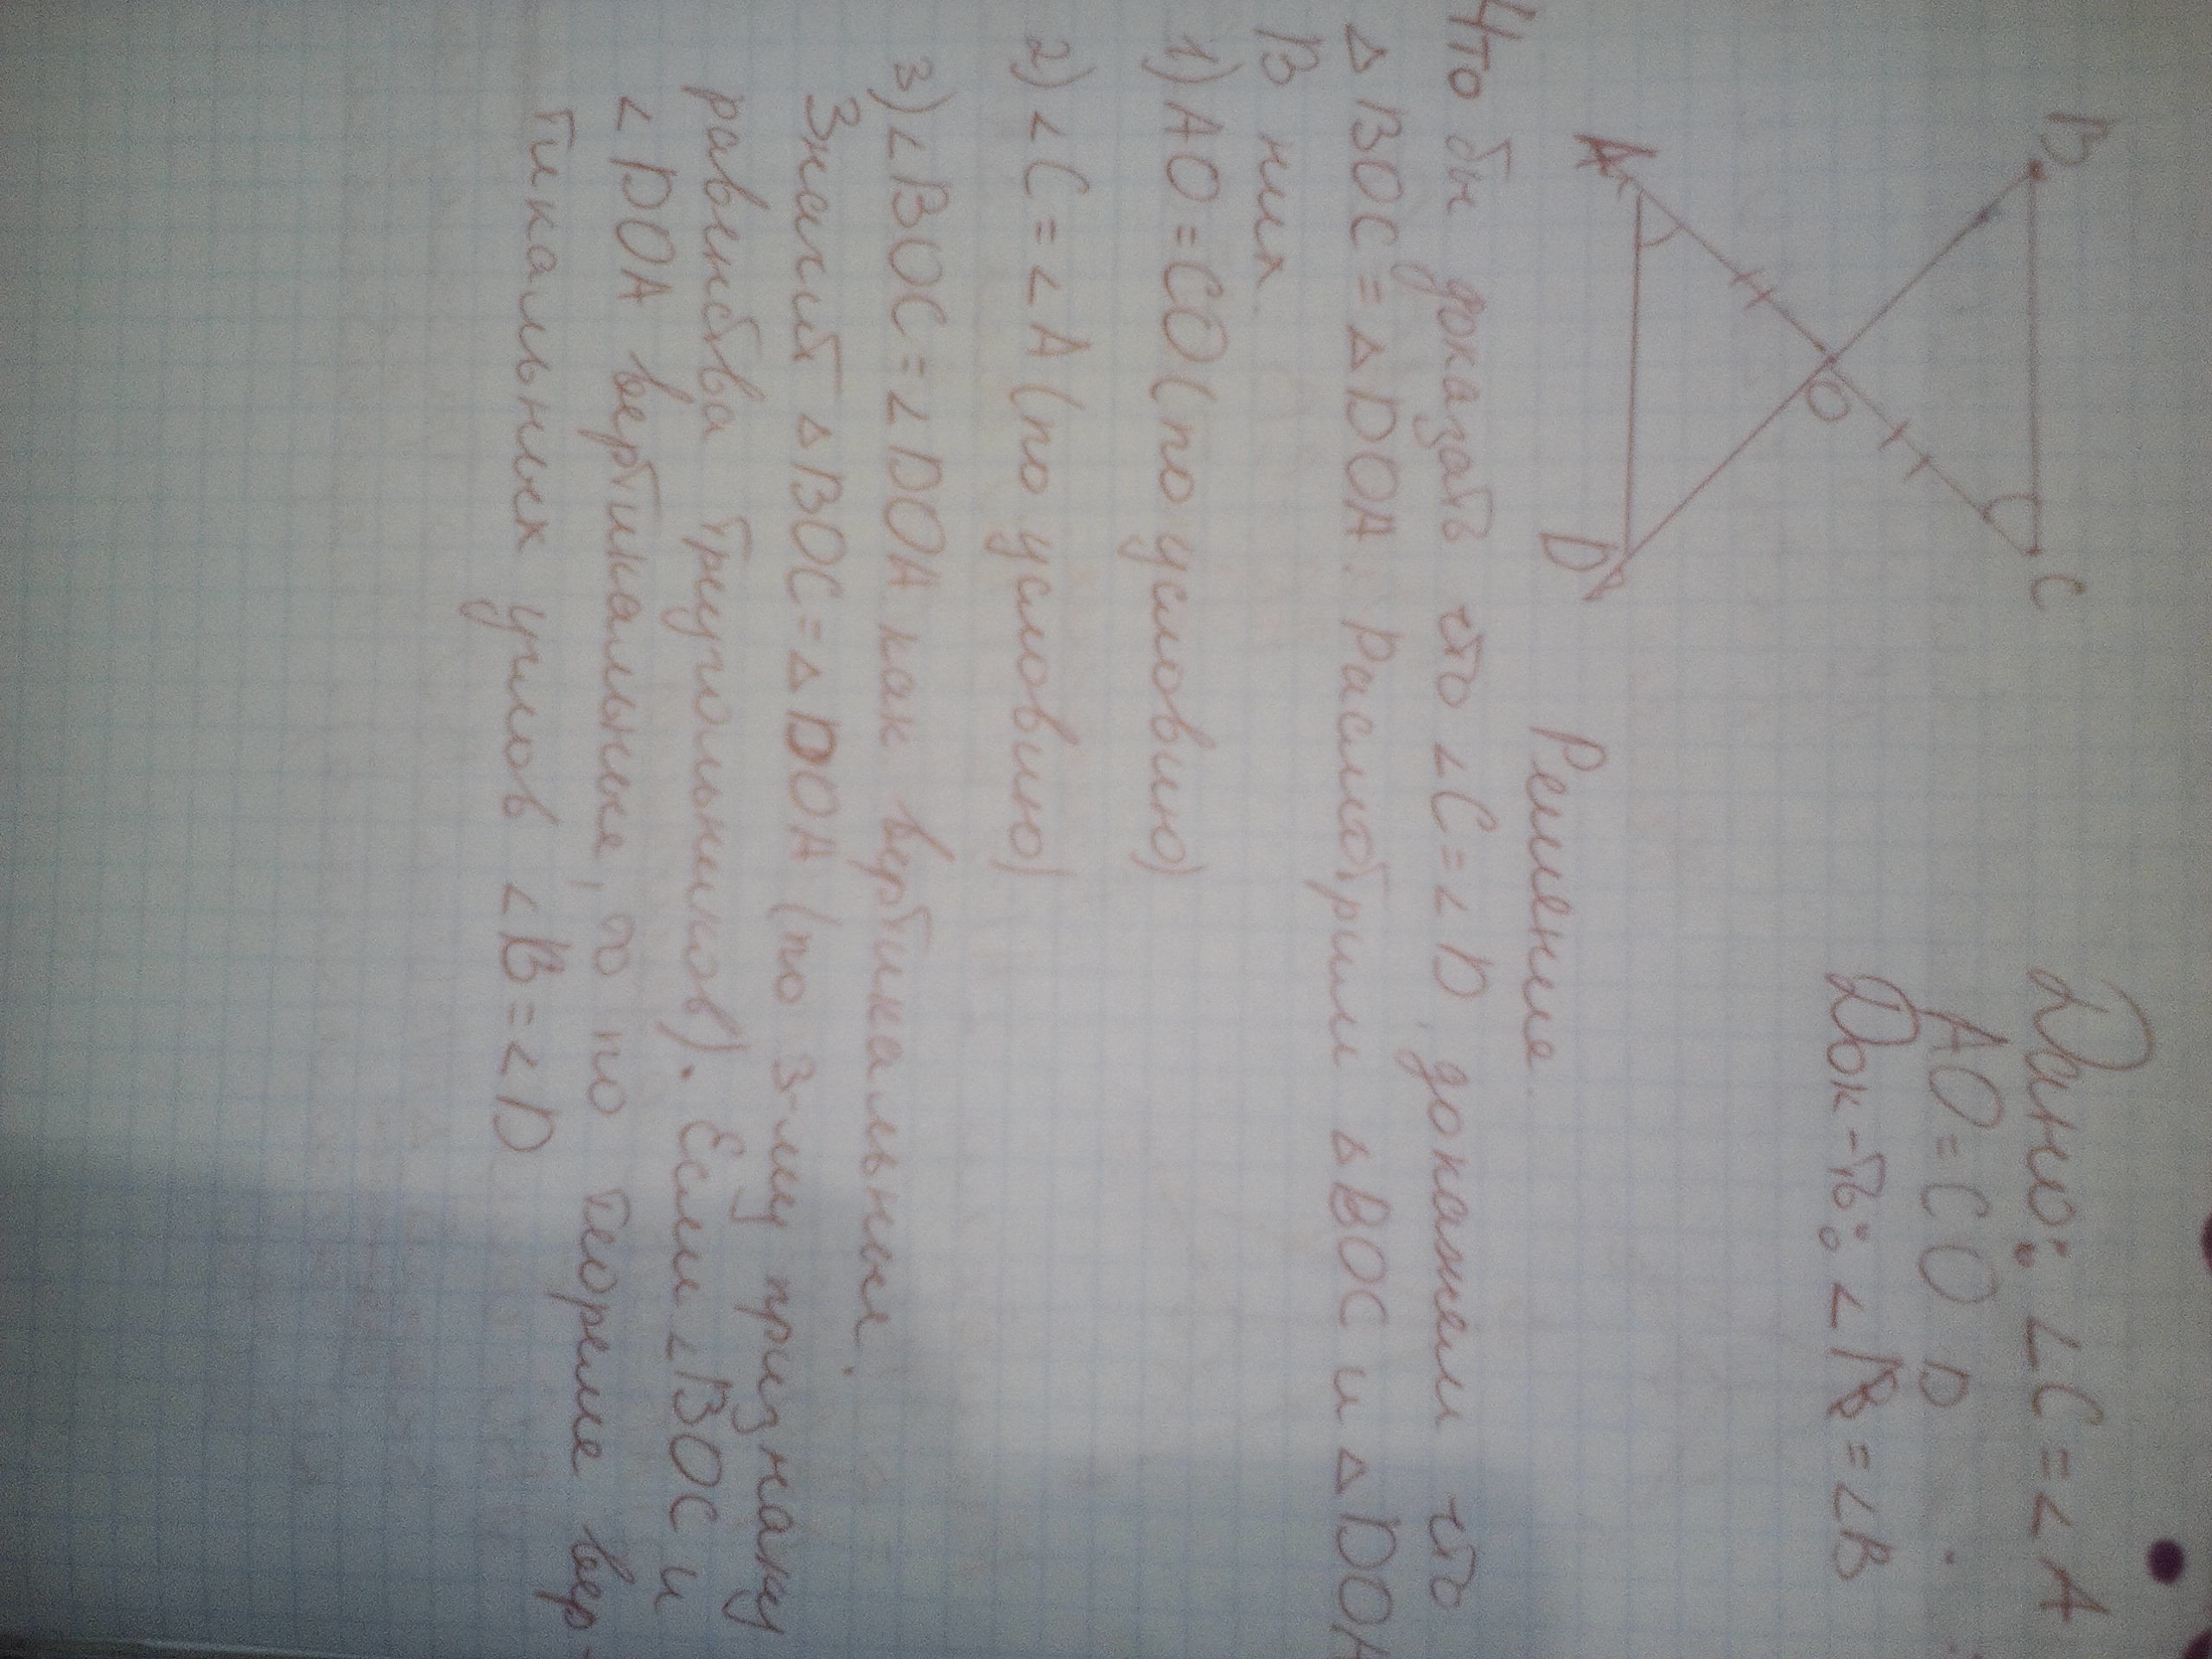 B
C
O
A
D
Дано: ∠C=∠A
AO=CO
D
Док-ть: ∠B=∠B
Решение.
Что бы доказать что ∠C=∠D, докажем что
△BOC=△DOA. Расмотрим △BOC и △DOA
В них.
1) AO=CO(по условию)
2) ∠C=∠A (по условию)
3) ∠BOC=∠DOA как вертикальные.
Значит △BOC=△DOA (по 3-му признаку
равенства треугольников). Если ∠BOC и
∠DOA вертикальные, то по теореме вер-
тикальных углов ∠B=∠D